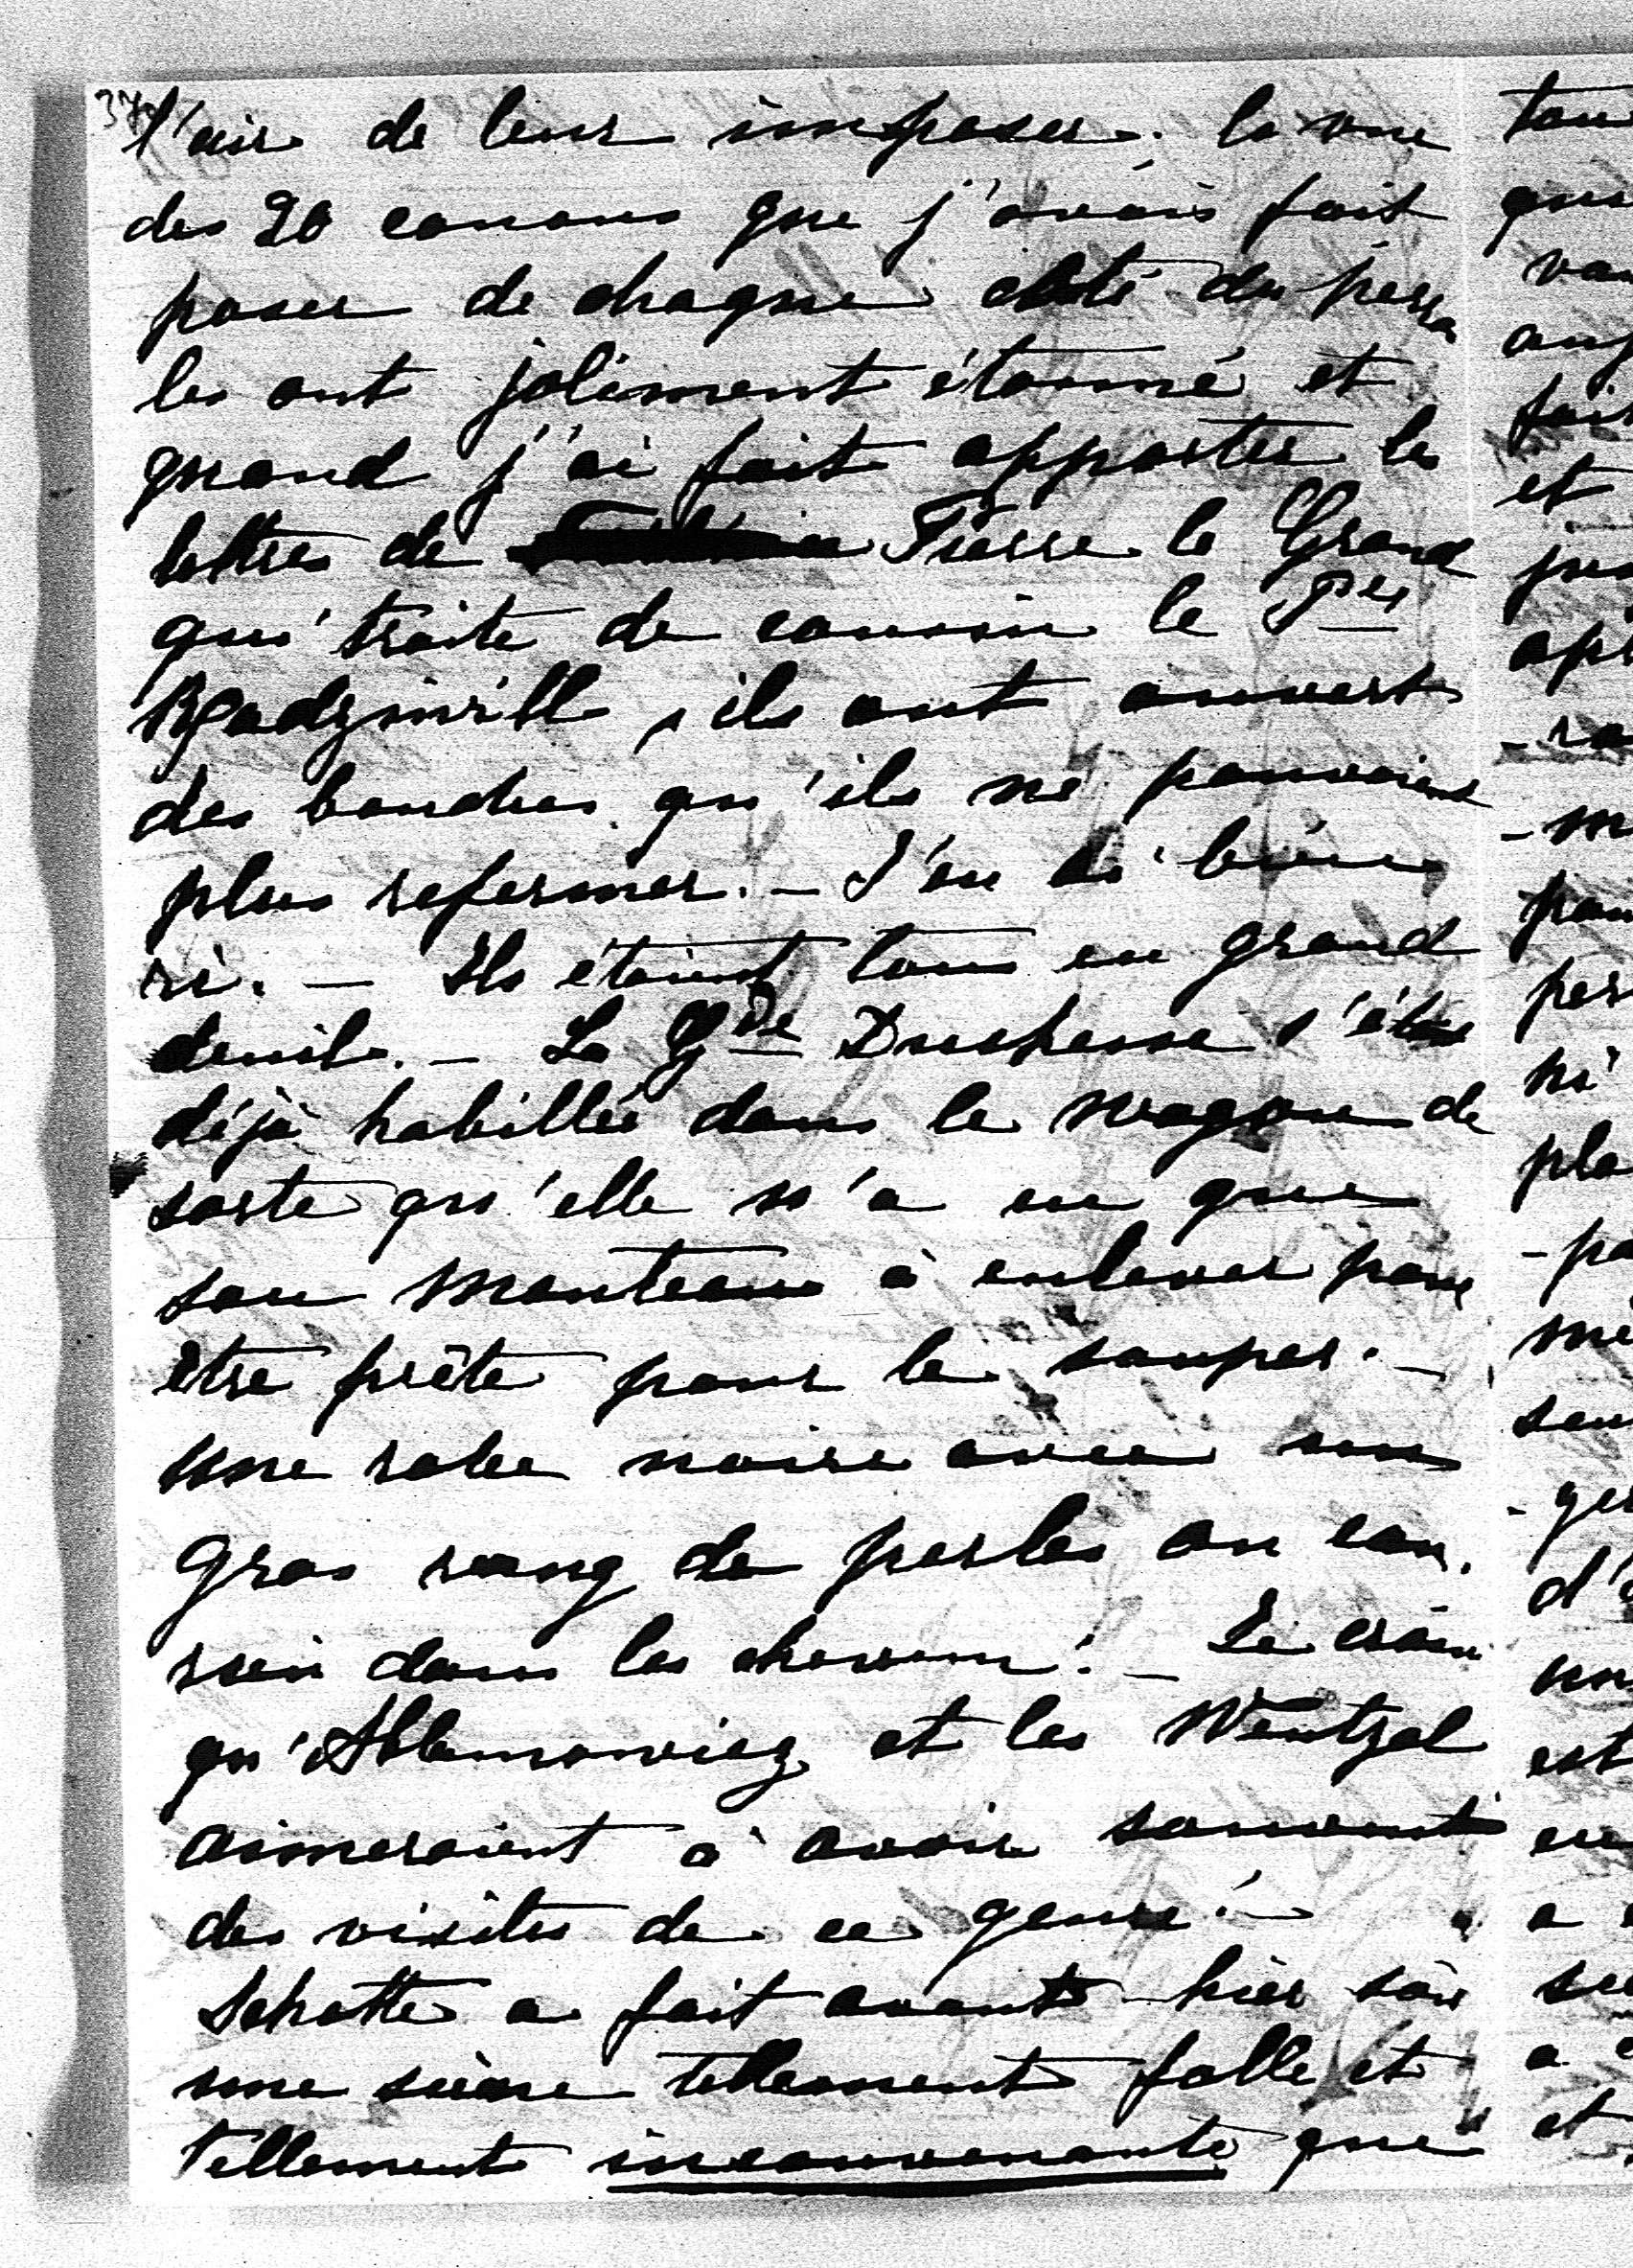 l'air de leur imposer. la vue
des 20 canons que j'avais fait
poser de chaque côté du perron
les ont joliment étonné et
quand j'ai fait apporter les
lettres de Pierre le Grand
qui traite de cousin le Pce
Radziwill, ils ont ouvert
des bouches qu'ils ne pouvaient
plus refermer. – J'en ai bien
ri. – Ils étaient tous en grand
deuil. – La Gde Duchesse s'était
déjà habillée dans le wagon de
sorte qu'elle n'a eu que
son manteau à enlever pour
être prête pour le souper. –
Une robe noire avec un
gros rang de perles au cou.
rien dans les cheveux. – Je crois
qu'Abramowicz et les Wentzel
aimeraient à avoir souvent
des visites de ce genre. –
Schotte a fait avant-hier soir
une scène tellement folle et
tellement inconvenante que